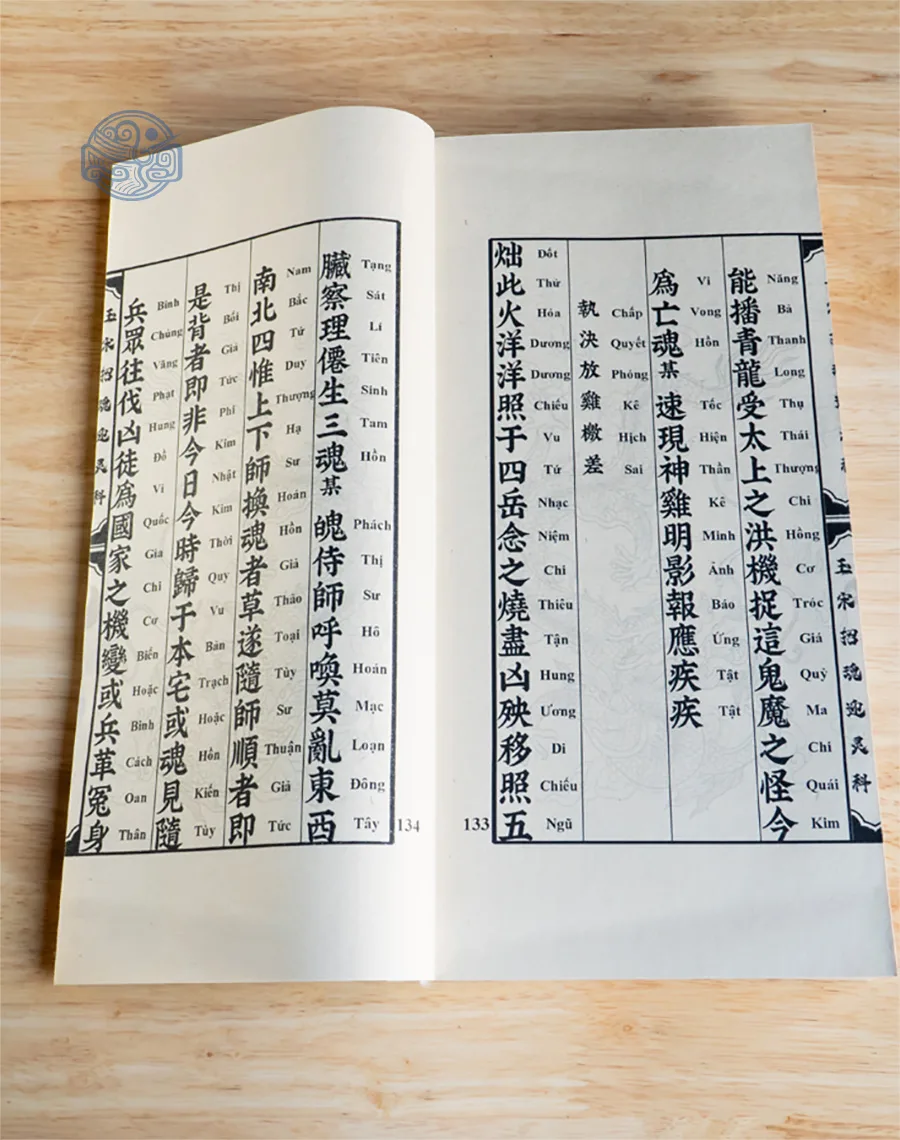 玉宋招魂迎灵科
能播青龍受太上之洪機捉這鬼魔之怪今
Năng Bả Thanh Long Thụ Thái Thượng Chi Hồng Cơ Tróc Giá Quỷ Ma Chi Quái Kim
爲亡魂某速現神雞明影報應疾疾
Vi Vong Hồn Tốc Hiện Thần Kê Minh Ảnh Báo Ứng Tật Tật
執決放雞檄差
Chấp Quyết Phóng Kê Hịch Sai
炪此火洋洋照于四岳念之燒盡凶殃移照五
Đốt Thử Hỏa Dương Dương Chiếu Vu Tứ Nhạc Niệm Chi Thiêu Tận Hung Ương Di Chiếu Ngũ
133
臟察理僊生三魂某魄侍師呼喚莫亂東西
Tạng Sát Lí Tiên Sinh Tam Hồn Phách Thị Sư Hô Hoán Mạc Loạn Đông Tây
南北四惟上下師換魂者草遂隨師順者即
Nam Bắc Tứ Duy Thượng Hạ Sư Hoán Hồn Giả Thảo Toại Tùy Sư Thuận Giả Tức
是背者即非今日今時歸于本宅或魂見隨
Thị Bối Giả Tức Phi Kim Nhật Kim Thời Quy Vu Bản Trạch Hoặc Hồn Kiến Tùy
兵眾往伐凶徒爲國家之機變或兵革冤身
Binh Chúng Vãng Phạt Hung Đồ Vi Quốc Gia Chi Cơ Biến Hoặc Binh Cách Oan Thân
玉宋招魂迎灵科
134